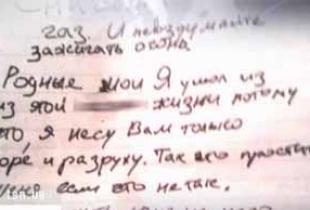 газ. И не вздумайте
зажигать огонь
Родные мои Я ушол из
из этой жизни потому
что, я несу Вам только
горе и разруху. Так что простите
меня если это не так.
tsn.ua